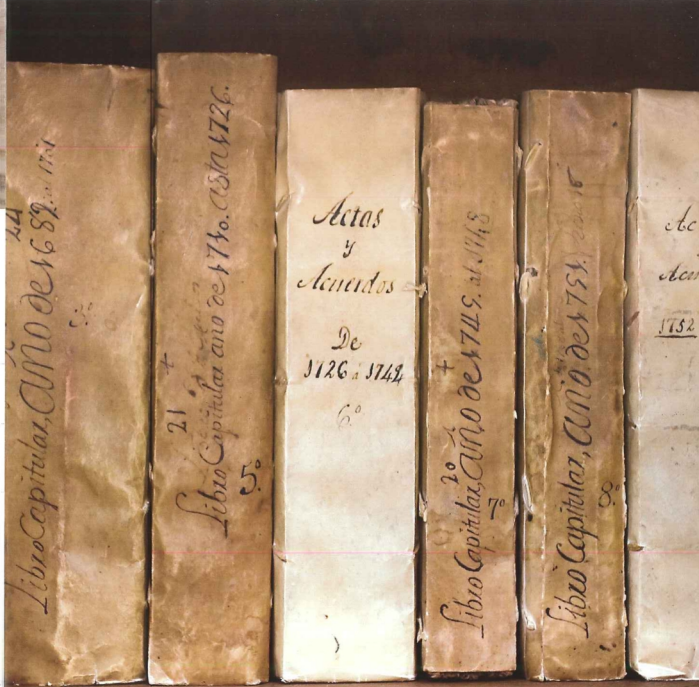 24
Libro Capitular, año de 1689.
21 +
Libro Capitular año de 1710. asta 1726.
5º
Actas
y
Acuerdos
De
1726 a 1742
6º
20 +
Libro Capitular, año de 1745. al 1748
7º
Libro Capitular, año de 1751.
8º
Ac
Acu
1752